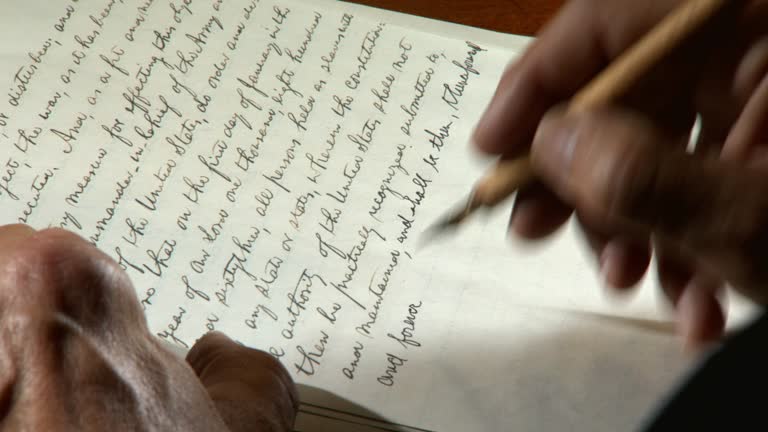 or disturbed; and
ject, the war, as it has been,
Secretin. And, as a fit and nece
ry measure for effecting this obje
mmander-in-chief of the Army an
of the United States, do order and de
that on the first day of January in the
year of our Lord one thousand eight hundred
and sixty three, all persons held as slaves with
any state or states, wherein the constitution
authority of the United States shall not
then be practically recognized, submitted to,
and maintained, and shall be then, thenceforward
and forever